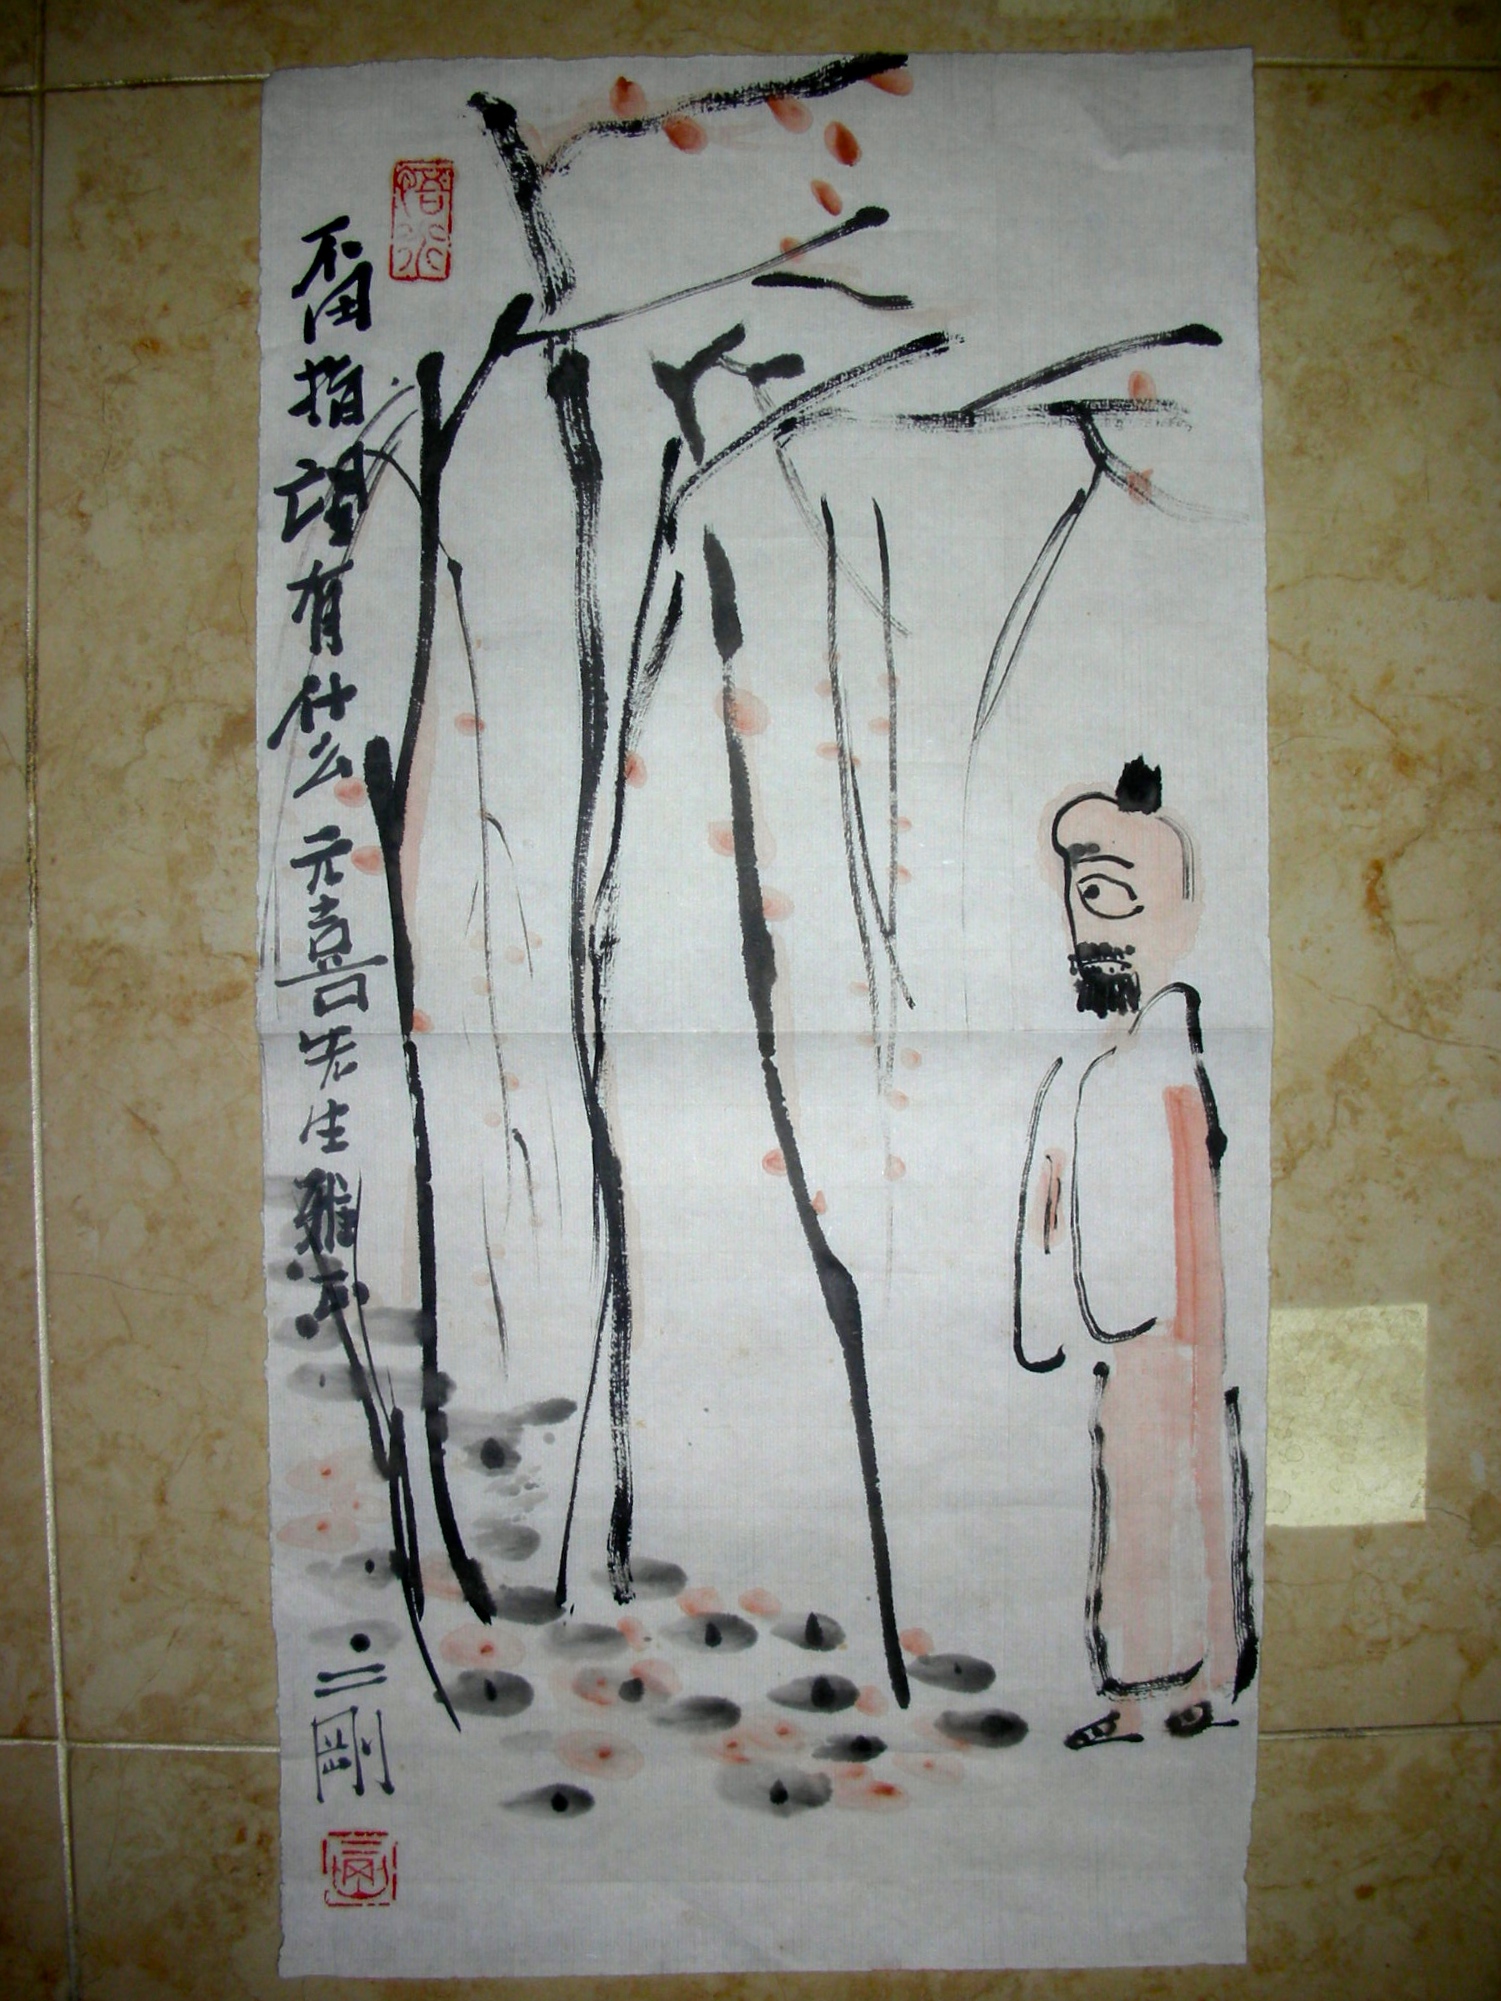 不用指望有什么 元喜先生雅示
二剛